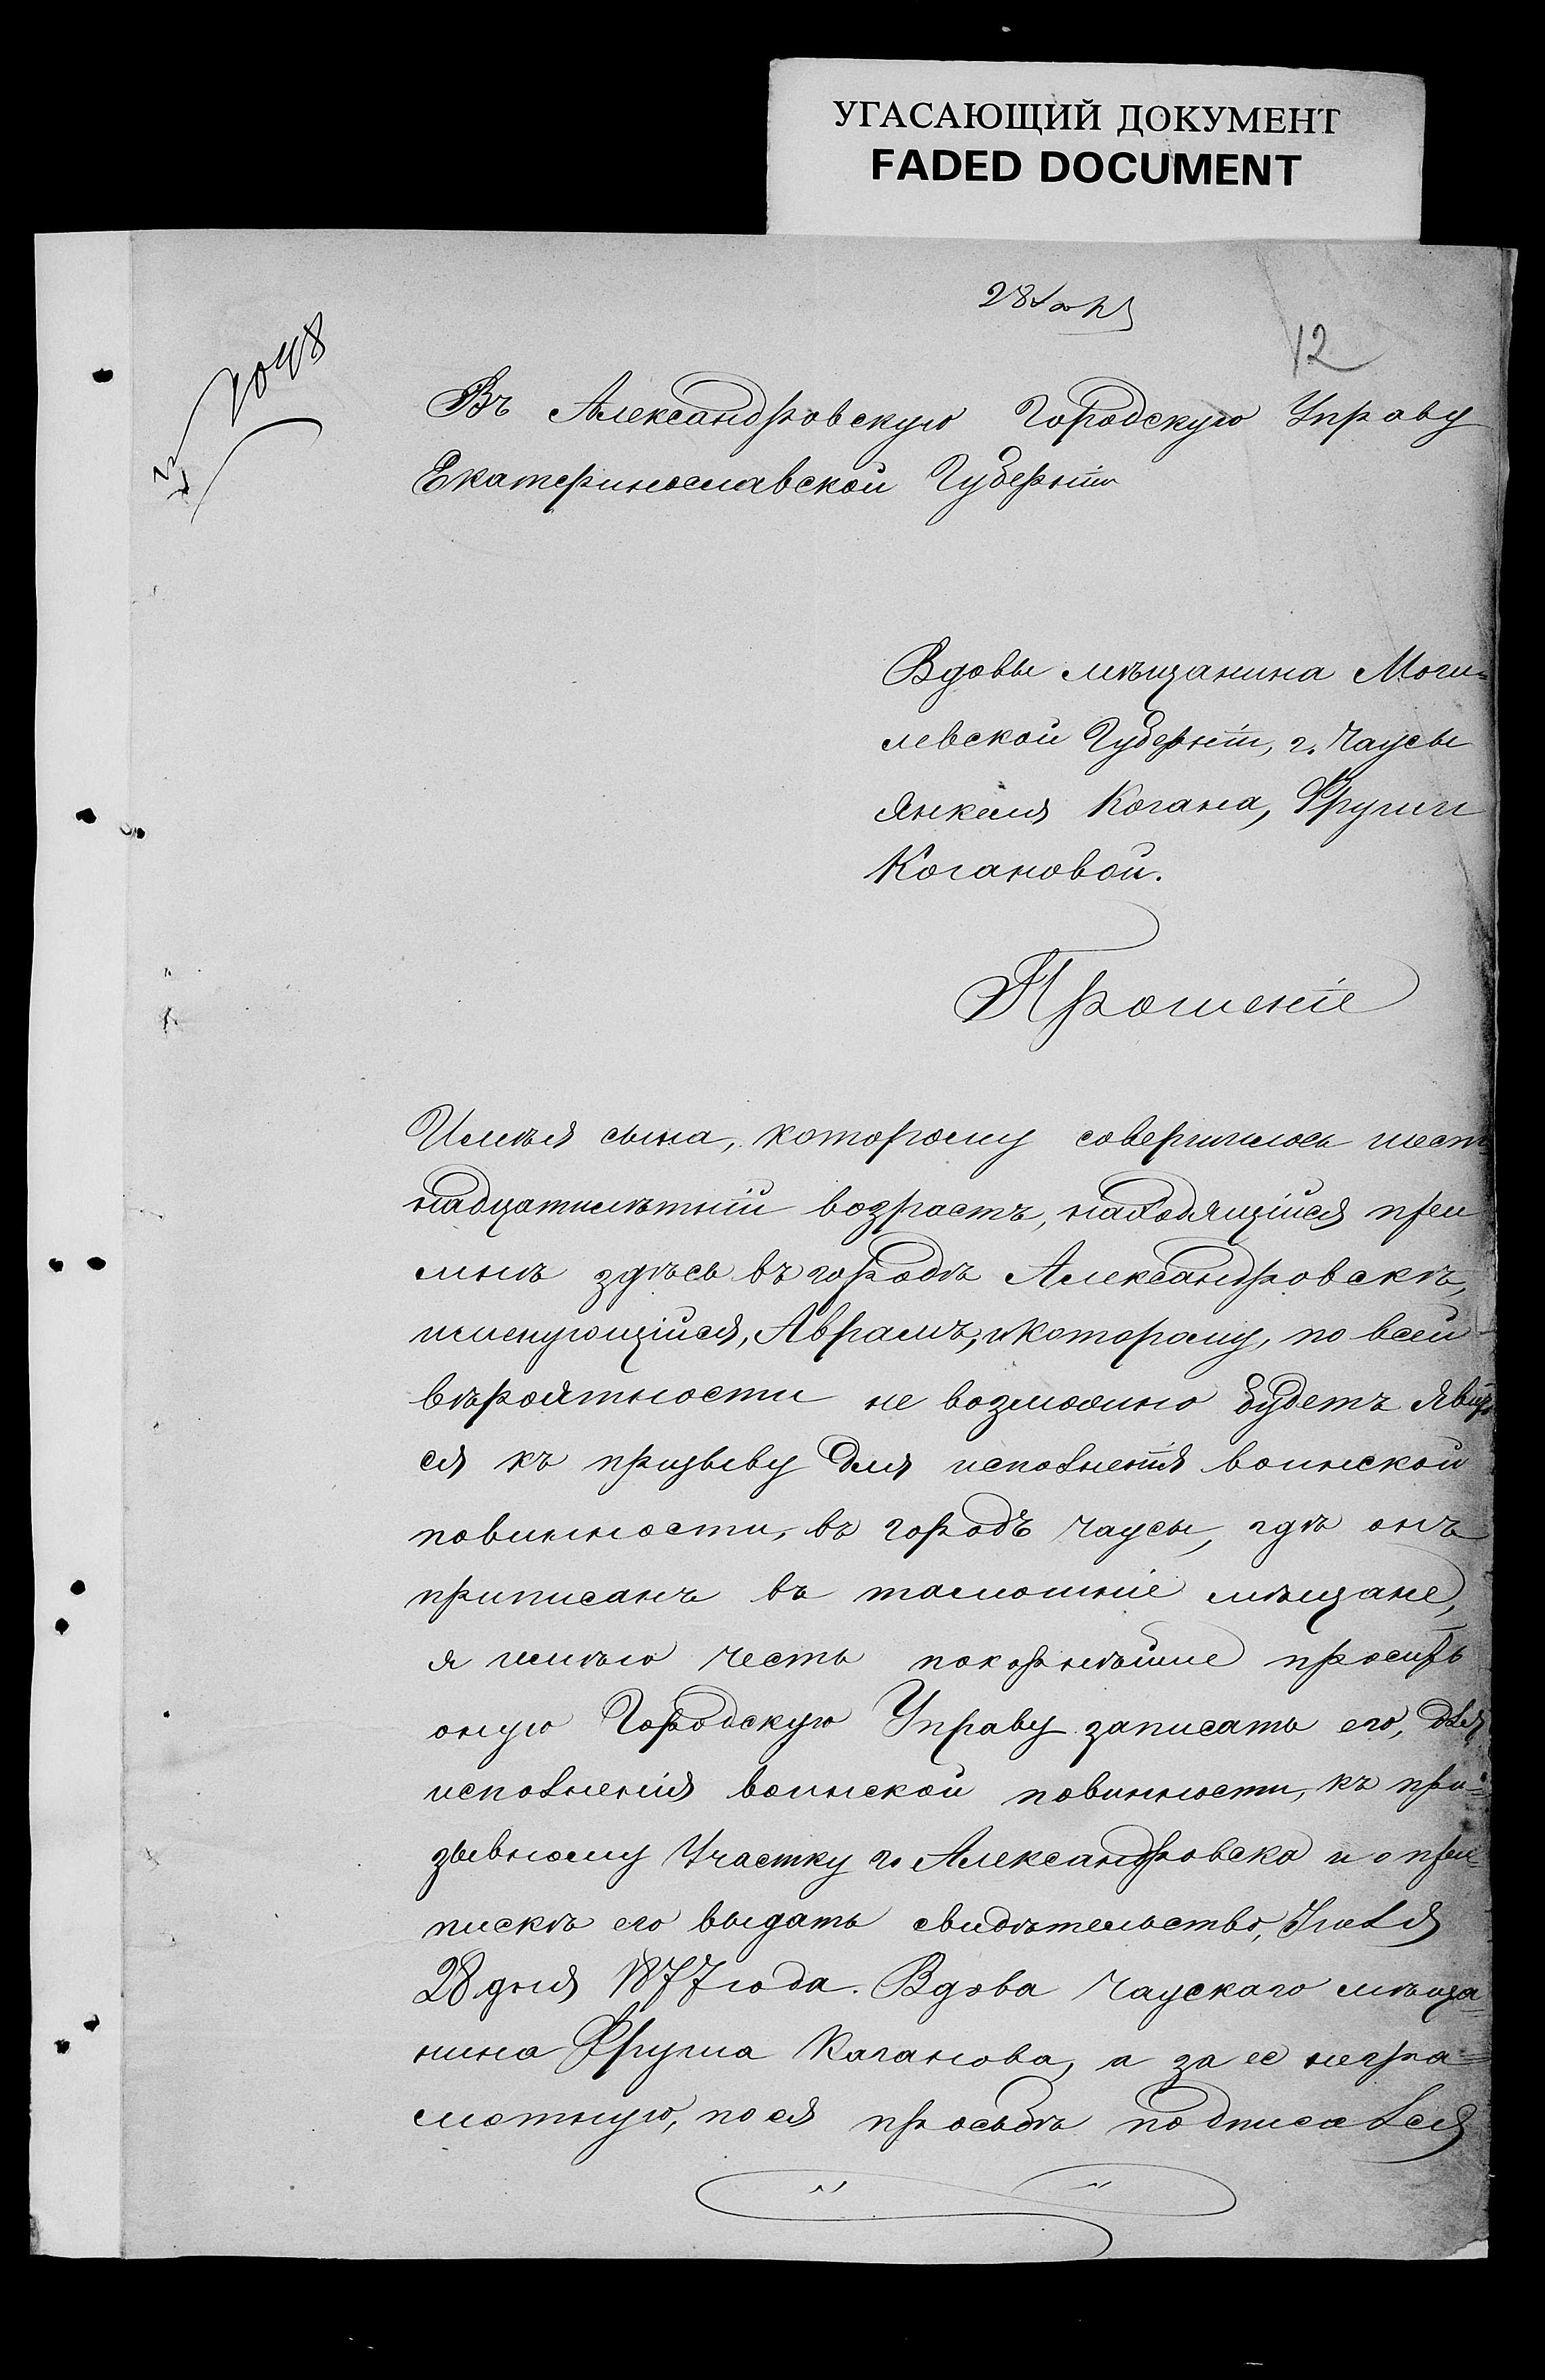 УГАСАЮЩИЙ ДОКУМЕНТ
FADED DOCUMENT
28
12
2048
Въ Александровскую Городскую Управу
Екатеринославской Губерніи
Вдовы мѣщанина Моги=
левской Губерніи, г. Чаусы
Янкеля Когана, Фруми
Когановой.
Прошеніе
Имѣя сына, которому совершилось шест=
надцатилѣтній возрастъ, находящійся при
мнѣ здѣсь въ городѣ Александровскѣ,
именующійся, Аврамъ, и которому, по всей
вѣроятности не возможно будетъ явить
ся къ призыву для исполненія воинской
повинности, въ городѣ Чаусы, гдѣ онъ
приписанъ въ тамошніе мѣщане,
я имѣю честь покорнѣйше просить
оную Городскую Управу записать его, для
исполненія воинской повинности, къ при=
зывному Участку г. Александровска и о при=
пискѣ его выдать свидѣтельство, Іюля
28 дня 1877 года. Вдова Чаускаго мѣща=
нина Фрума Каганова, а за ее негра=
мотную, по ея просьбѣ подписался